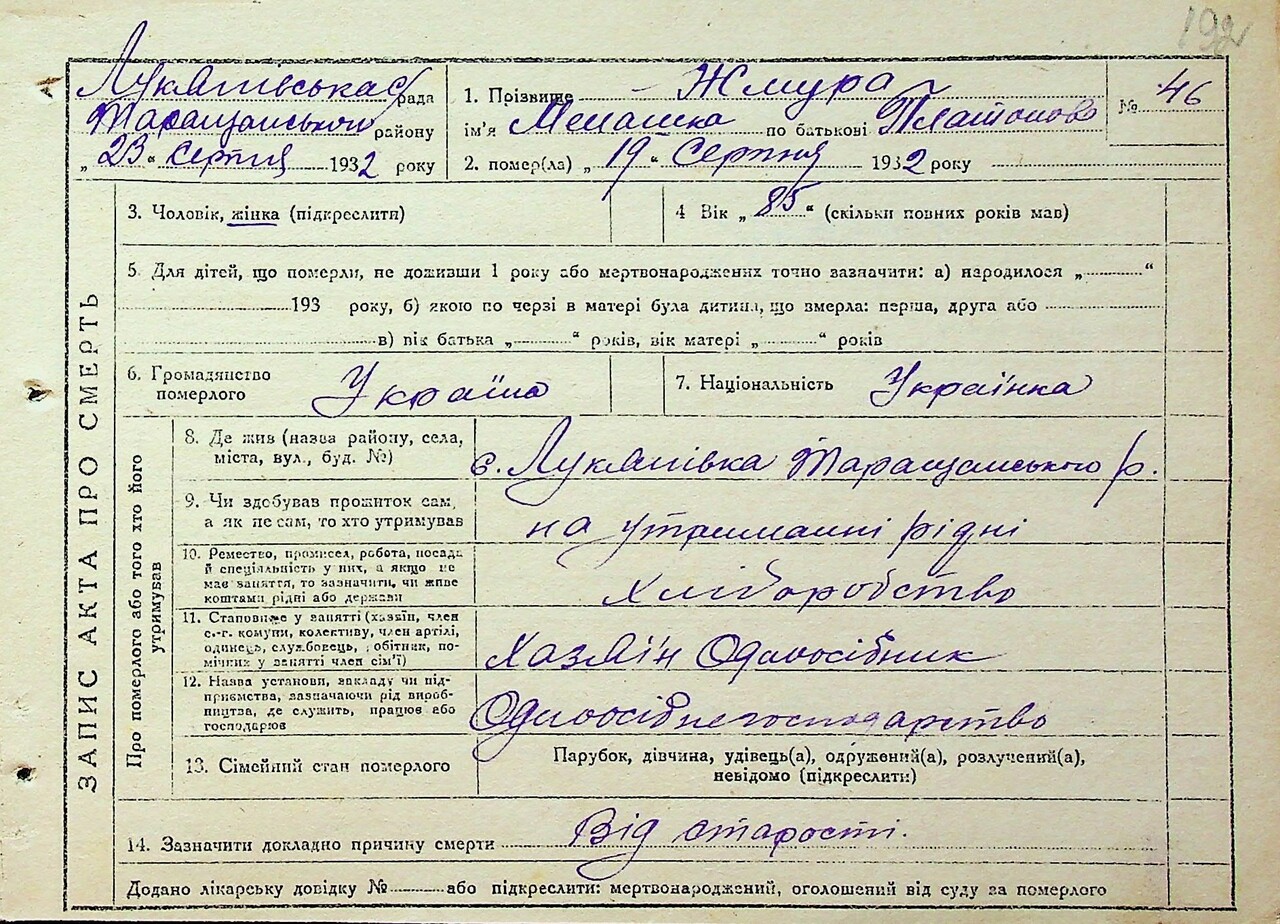 192
Лук'янівська с/рада
Таращанського району
„23“ серпня 1932 року
1. Прізвище Жмура
ім'я Мелашка по батькові Платонова
2. помер(ла) „19“ Серпня 1932 року
№ 46
3. Чоловік, жінка (підкреслити)
4 Вік „85“ (скільки повних років мав)
5. Для дітей, що померли, не доживши 1 року або мертвонароджених точно зазначити: а) народилося „ “
193 року, б) якою по черзі в матері була дитина, що змерла: перша, друга або
в) вік батька „ “ років, вік матері „ “ років
6. Громадянство
померлого
Україна
7. Національність Українка
ЗАПИС АКТА ПРО СМЕРТЬ
Про померлого або того хто його
утримував
8. Де жив (назва району, села,
міста, вул., буд. №)
с. Лукянівка Таращанського р.
9. Чи здобував прожиток сам,
а як не сам, то хто утримував
на утриманні рідні
10. Ремество, промисел, робота, посада
й спеціяльність у них, а якщо не
має заняття, то зазначити, чи живе
коштами рідні або держави
Хліборобство
11. Становище у занятті (хазяїн, член
с.-г. комуни, колективу, член артілі,
одинець, службовець, робітник, по-
мічник у занятті член сім'ї)
Хазяїн Одноосібник
12. Назва установи, закладу чи під-
приємства, зазначаючи рід вироб-
ництва, де служить, працює або
господарює
Одноосібне господарство
13. Сімейний стан померлого
Парубок, дівчина, удівець(а), одружений(а), розлучений(а),
невідомо (підкреслити)
14. Зазначити докладно причину смерти Від старости.
Додано лікарську довідку № або підкреслити: мертвонароджений, оголошений від суду за померлого